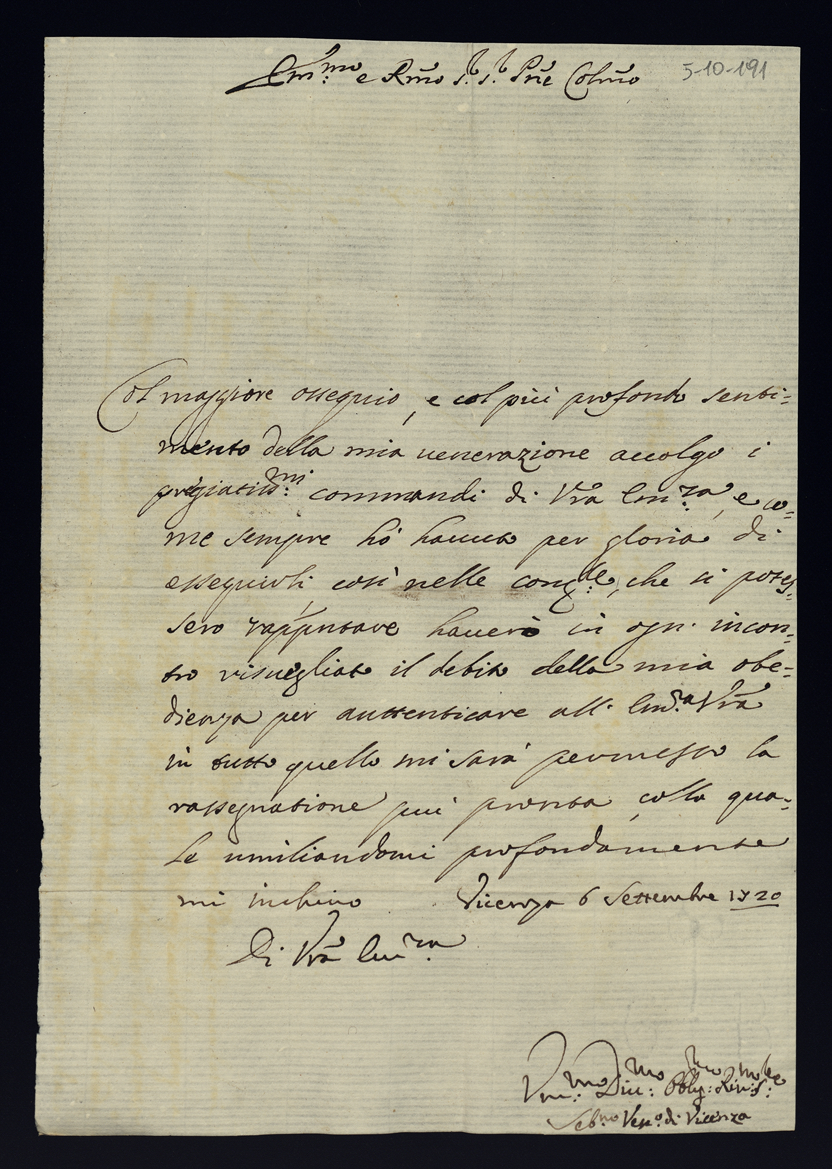 Em.mo e Rmo S.r S.r Prñe Colmo
5-10-191
Col maggiore ossequio, e col più profondo senti=
mento della mia venerazione accolgo i
pregiatiss.mi commandi di Vrã Em.za, e co=
me sempre hò hauuto per gloria di
esseguirli, così nelle cong.le, che si potes=
sero rappresentare hauerò in ogni incon=
tro risuegliato il debito della mia obe=
dienza per auttenticare all' Em.za Vrã
in tutto quello mi sarà permesso la
rassegnatione più pronta, colla qua=
le umiliandomi profondamente
mi inchino Vicenza 6 Settembre 1720
Di Vrã Em.za
Vm.mo Diu.mo Obly.mo Seru.
Seb.no Vesc.o di Vicenza